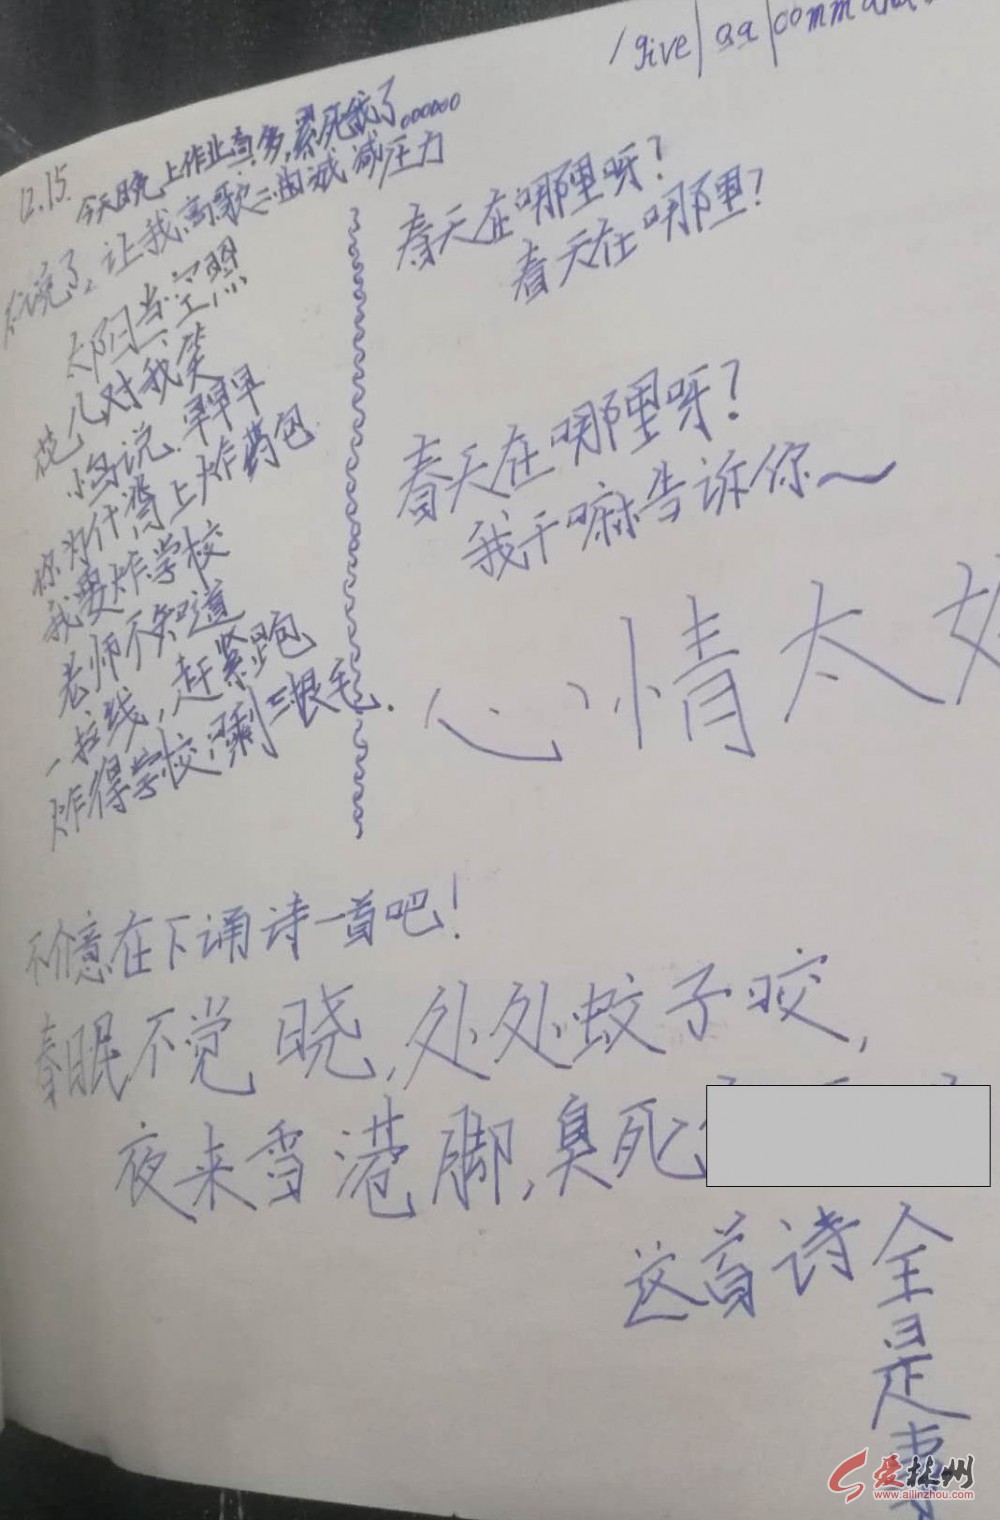 /give/aa/comman
12.15.
今天晚上作业真多,累死我了。。。。。。
不说了,让我高歌二曲减减压力
太阳当空照
花儿对我笑
小鸟说.早早早
你为什背上炸药包
我要炸学校
老师不知道
一拉线,赶紧跑
炸得学校剩三根毛.
春天在哪里呀?
春天在哪里?
春天在哪里呀?
我干嘛告诉你~
心情太
不介意在下诵诗一首吧!
春眠不觉晓,处处蚊子咬,
夜来香港脚,臭死
这首诗全是
爱株州
www.ailinzhou.com